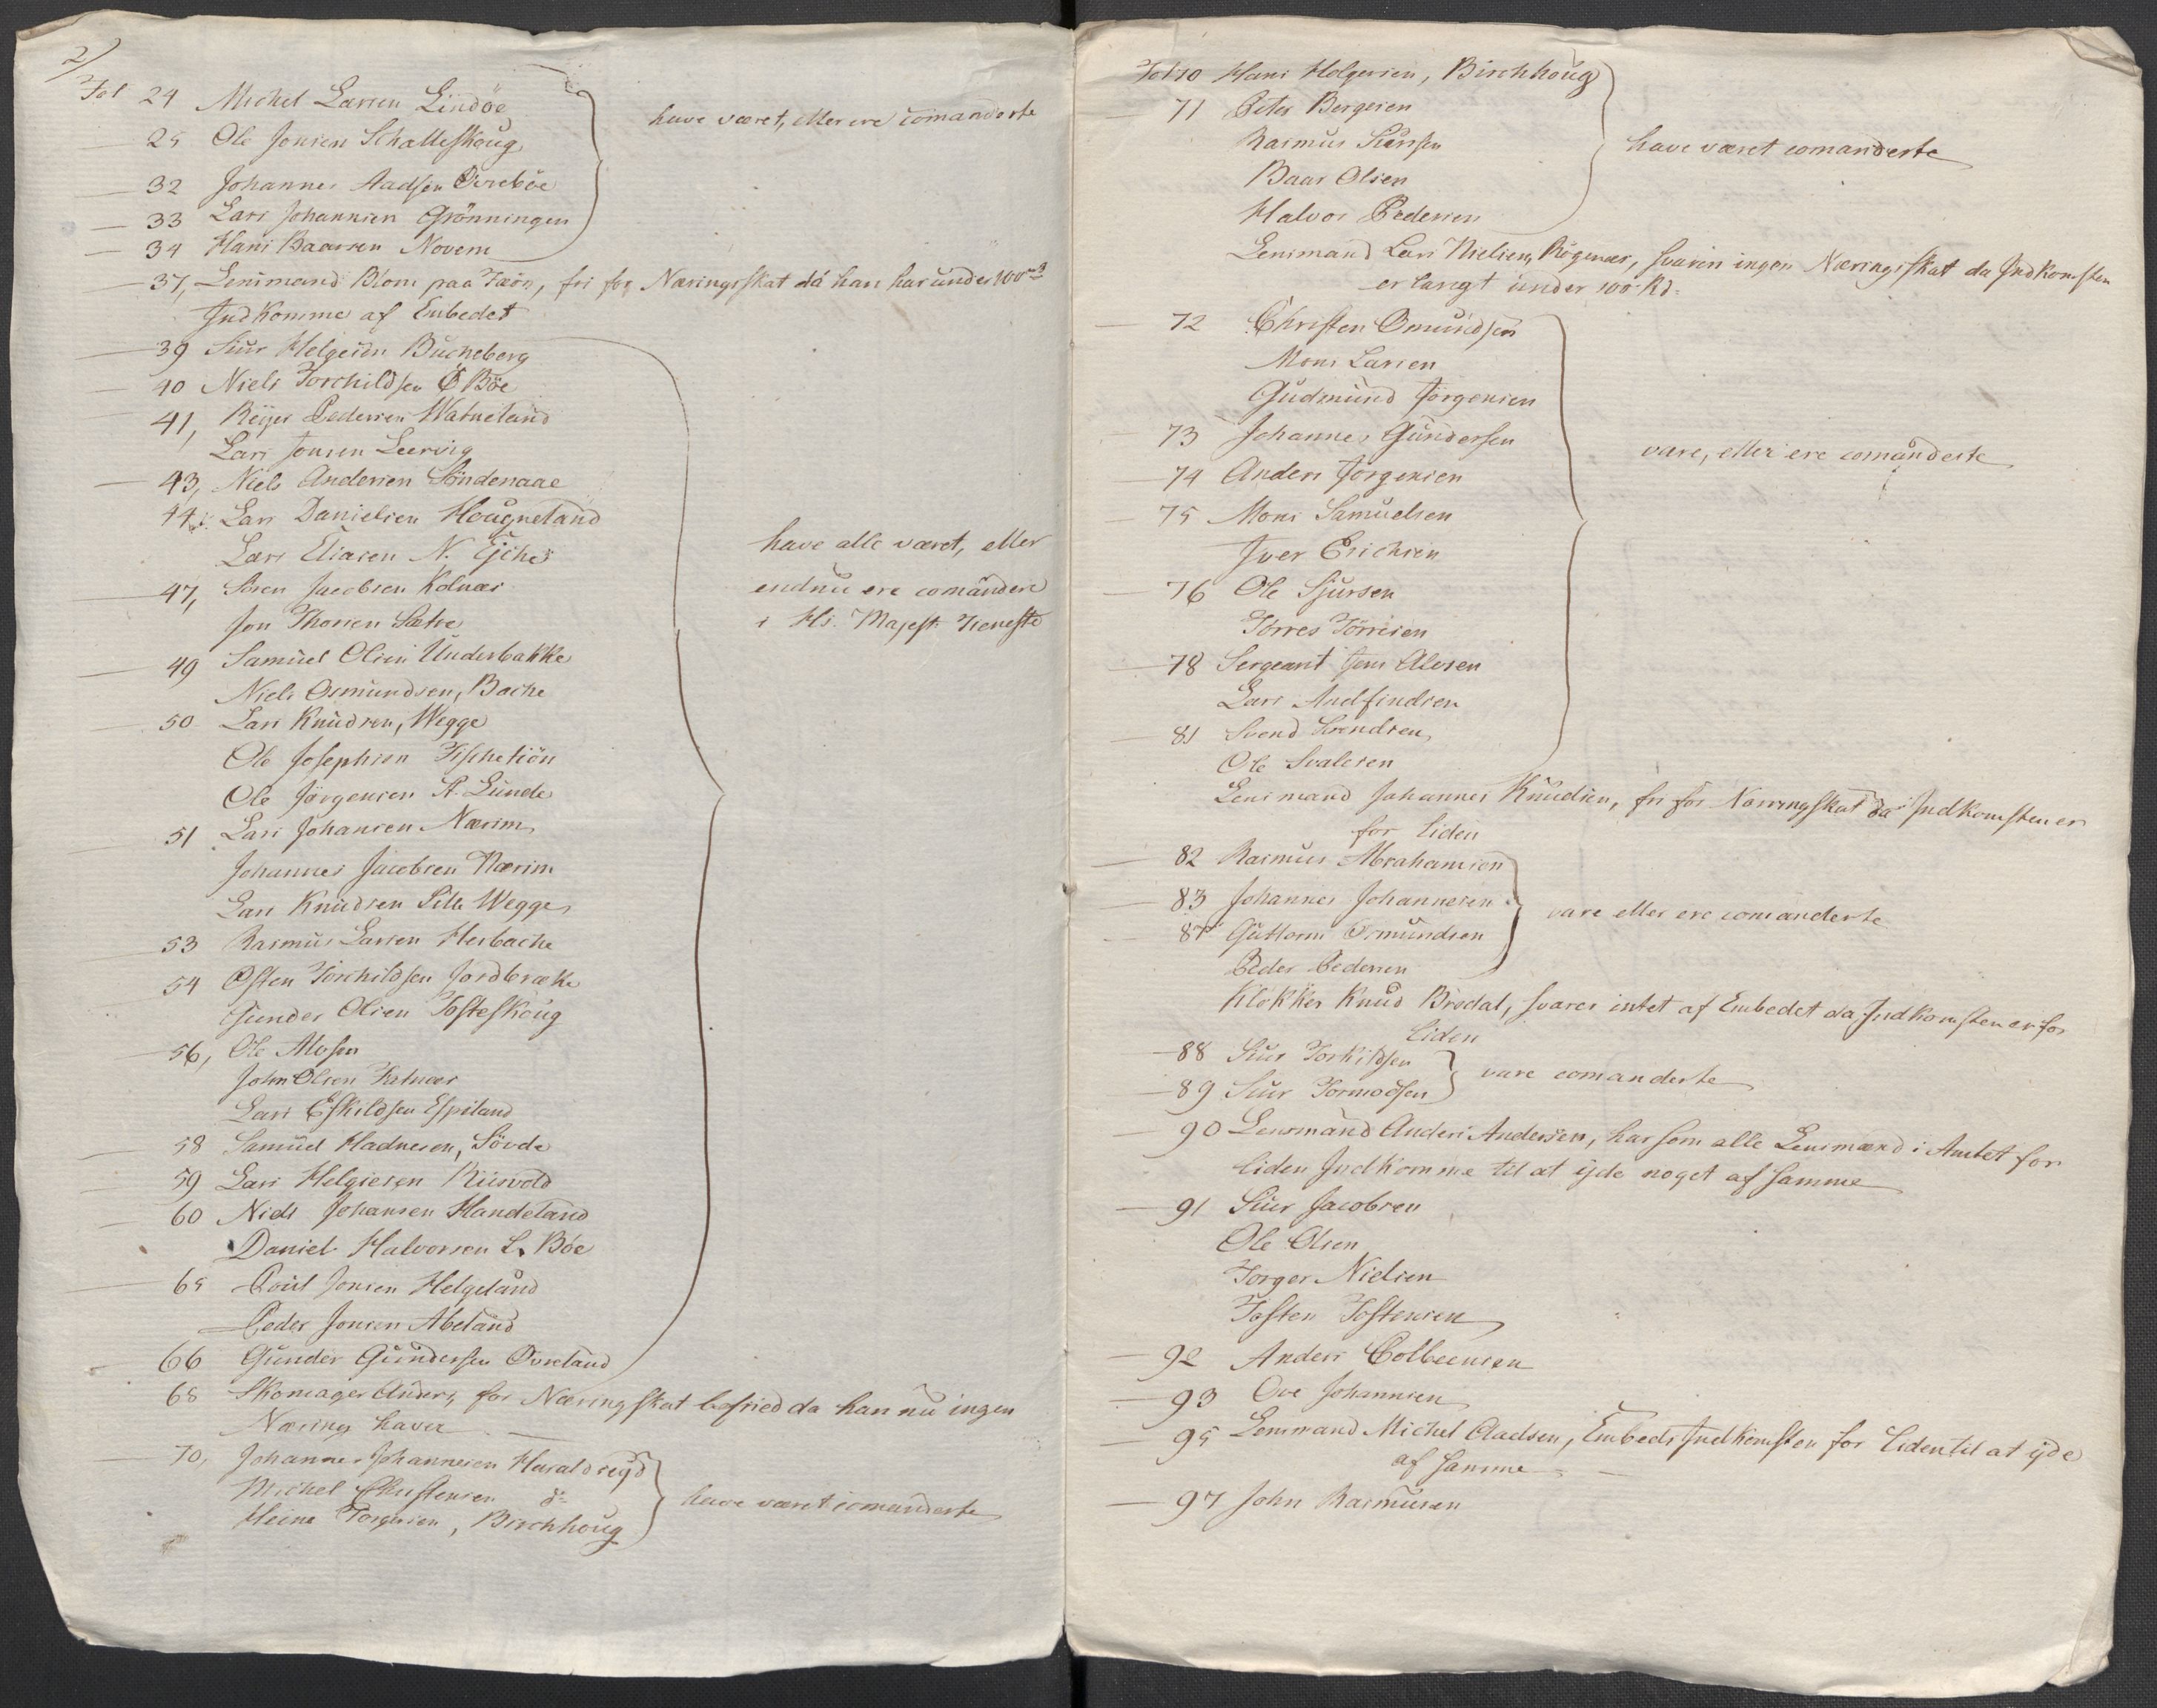 2/
Fol 24 Michel Larsen Lindöe
— 25 Ole Jonsen Schalleskoug
have været, eller ere comanderte
— 32 Johannes Aadsen Övreböe
— 33 Lars Johannsen Grönningen
— 34 Hans Baarsen Novem
— 37, Lensmand Blom paa Fæöe, fri for Næringsskat da han har under 100 rd
Indkomme af Embedet
— 39 Siur Helgesen Bucheberg
— 40 Niels Torchildsen Ö Böe
— 41, Reijer Pedersen Watneland
Lars Jonsen Leervig
— 43, Niels Andersen Söndenaae
44, Lars Danielsen Hougneland
Lars Eliasen N. Ejche
have alle været, eller
47, Sören Jacobsen Kolnæs
endnu ere comandere
Jon Thorsen Sætre
i Hs. Majest. Tieneste
— 49 Samuel Olsen Underbakke
Niels Osmundsen, Bache
— 50 Lars Knudsen, Wegge
Ole Josephsen Fischetiön
Ole Jörgensen A. Lunde
51 Lars Johansen Nærim
Johannes Jacobsen Nærim
Lars Knudsen Lille Wegge
53 Rasmus Larsen Herbache
54 Östen Torchildsen Jordbrække
Gunder Olsen Tofteskoug
— 56, Ole Alvsen
John Olsen Fatnæs
Lars Eskildsen Espeland
— 58 Samuel Hadnesen, Sövde
— 59 Lars Helgiesen Riisvold
— 60 Niels Johansen Handeland
Daniel Halvorsen L. Böe
— 65 Poul Jonsen Helgeland
Peder Jonsen Abeland
— 66 Gunder Gundersen Övreland
68 Skomager Anders, for Næringsskat befried da han nu ingen
Næring haver —
— 70, Johannes Johannesen Haraldseijd
Michel Christensen do
have været comanderte
Heine Torgersen, Birchhoug
Fol 70 Hans Holgersen, Birchhoug
— 71 Peter Bergesen
Rasmus Siursen
have været comanderte
Baar Olsen
Halvor Pedersen
Lensmand Lars Nielsen, Rögenæs, svarer ingen Næringsskat da Indkomsten
er langt under 100 Rd.
— 72 Christen Omundsen
Mons Larsen
Gudmund Jörgensen
— 73 Johannes Gundersen
vare, eller ere comanderte
— 74 Anders Jörgensen
— 75 Mons Samuelsen
Iver Erichsen
— 76 Ole Sjursen
Törres Törresen
— 78 Sergeant Jens Alvsen
Lars Andfindsen
— 81 Svend Svendsen
Ole Svalesen
Lensmand Johannes Knudsen, fri for Næringsskat da Indkomsten er
for liden
— 82 Rasmus Abrahamsen
— 83 Johannes Johannesen
vare eller ere comanderte
— 87 Guttorm Osmundsen
Peder Pedersen
Klokker Knud Bredal, svarer intet af Embedet da Indkomsten er for
liden
— 88 Siur Torkildsen
vare comanderte
— 89 Siur Tormodsen
— 90 Lensmand Anders Andersen, har som alle Lensmænd i Amtet for
liden Indkomme til at yde noget af samme
— 91 Siur Jacobsen
Ole Olsen
Torger Nielsen
Tosten Tostensen
— 92 Anders Colbeensen
— 93 Ove Johannsen
— 95 Lensmand Michel Aadsen, Embeds Indkomsten for liden til at yde
af samme —
— 97 John Rasmusen